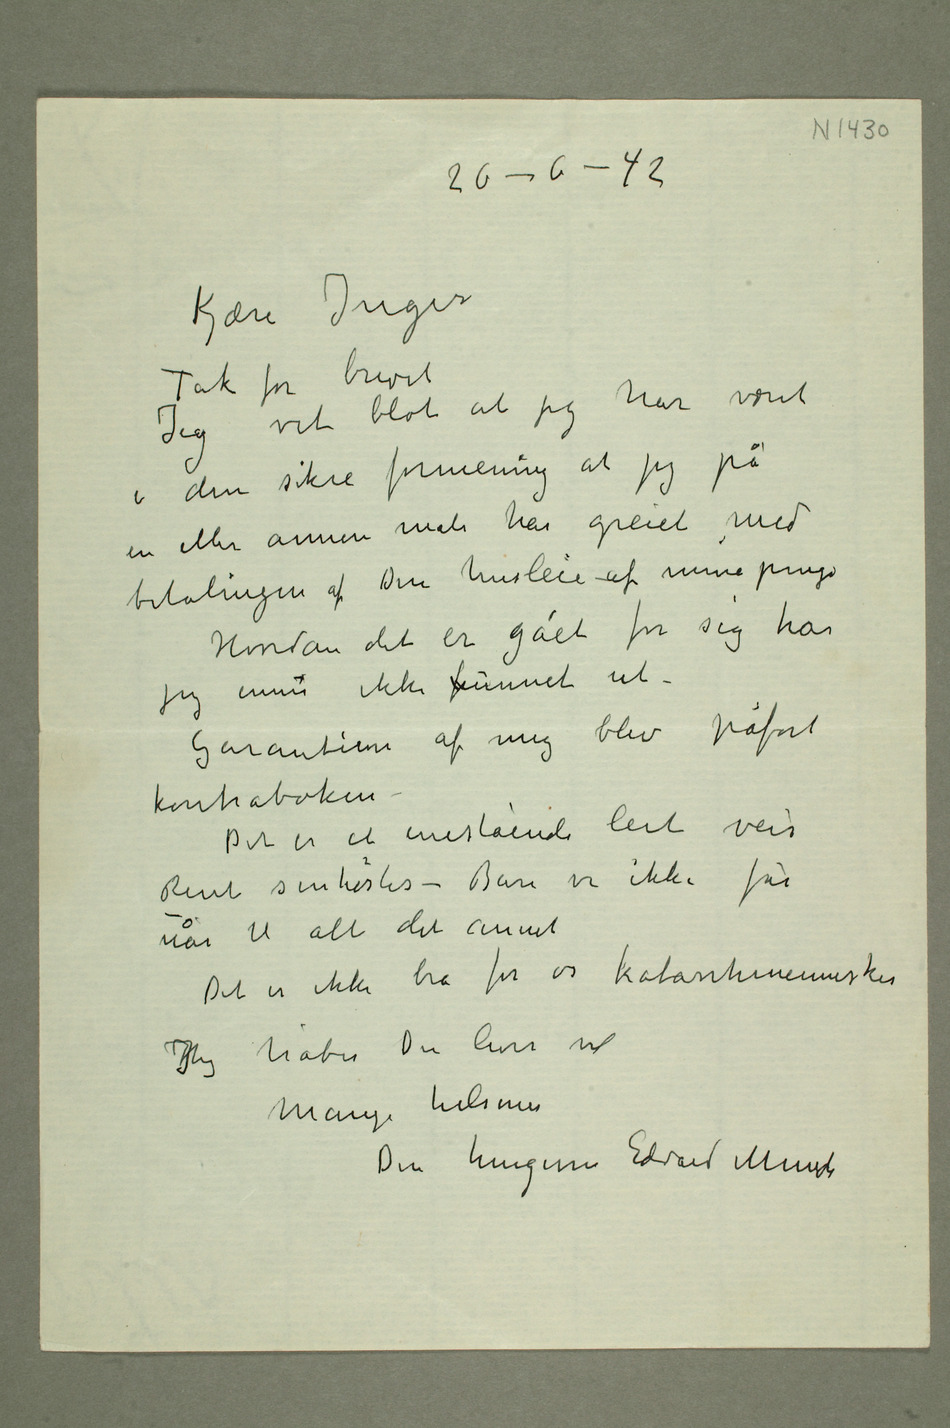 N1430
26 – 6 – 42
Kjære Inger
Tak for brevet
Jeg vet blot at jeg har været
i den sikre formening at jeg på
en eller annen måte har greiet med
betalingen af Din husleie – af mine penge
Hvordan det er gået for sig har
jeg ennu ikke funnet ut –
Garantien af mig blev påført
kontraboken –
Det er et enestående leit veir
Rent senhøstes – Bare vi ikke får
når til alt det annet
Det er ikke bra for os katarrhmennesker
Jeg håber Du lever vel
Mange hilsener
Din hengivne Edvard Munch